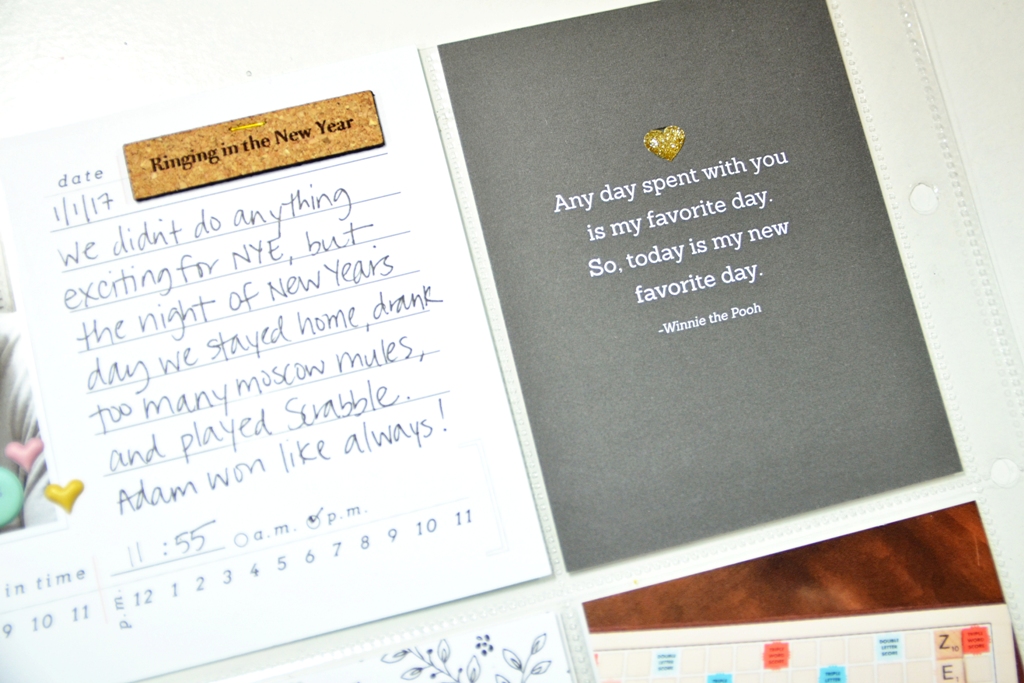 Ringing in the New Year
date
1/1/17
we didn't do anything
exciting for NYE, but
the night of New Years
day we stayed home, drank
too many moscow mules,
and played Scrabble.
Adam won like always!
11:55 a.m. p.m.
in time
9 10 11
p.m. 12 1 2 3 4 5 6 7 8 9 10 11
Any day spent with you
is my favorite day.
So, today is my new
favorite day.
-Winnie the Pooh
DOUBLE LETTER SCORE
DOUBLE LETTER SCORE
Z10
E1